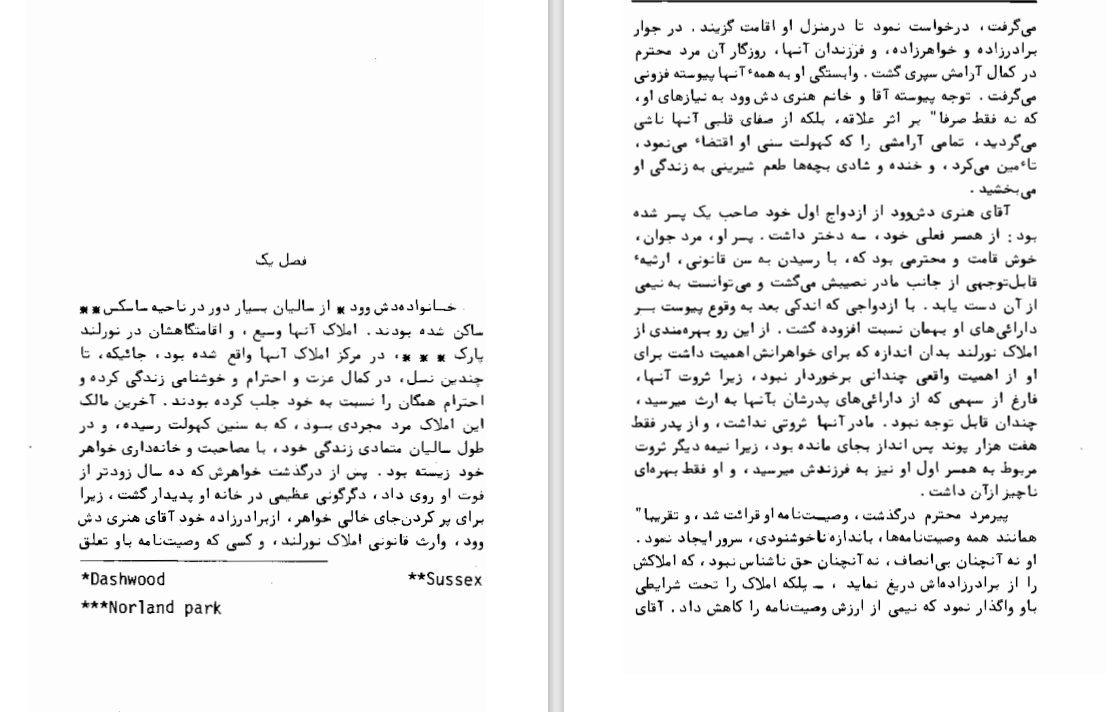 فصل یک
خانواده‌دش وود * از سالیان بسیار دور در ناحیه ساسکس**
ساکن شده بودند. املاک آنها وسیع، و اقامتگاهشان در نورلند
پارک ***، در مرکز املاک آنها واقع شده بود، جائیکه، تا
چندین نسل، در کمال عزت و احترام و خوشنامی زندگی کرده و
احترام همگان را نسبت به خود جلب کرده بودند. آخرین مالک
این املاک مرد مجردی بود، که به سنین کهولت رسیده، و در
طول سالیان متمادی زندگی خود، با مصاحبت و خانه‌داری خواهر
خود زیسته بود. پس از درگذشت خواهرش که ده سال زودتر از
فوت او روی داد، دگرگونی عظیمی در خانه او پدیدار گشت، زیرا
برای پر کردن‌جای خالی خواهر، ازبرادرزاده خود آقای هنری دش
وود، وارث قانونی املاک نورلند، و کسی که وصیت‌نامه باو تعلق
*Dashwood **Sussex
***Norland park
می‌گرفت، درخواست نمود تا درمنزل او اقامت گزیند. در جوار
برادرزاده و خواهرزاده، و فززندان آنها، روزگار آن مرد محترم
در کمال آرامش سپری گشت. وابستگی او به همهٔ آنها پیوسته فزونی
می‌گرفت. توجه پیوسته آقا و خانم هنری دش وود به نیازهای او،
که نه فقط صرفا" بر اثر علاقه، بلکه از صفای قلبی آنها ناشی
می‌گردید، تمامی آرامشی را که کهولت سنی او اقتضاء می‌نمود،
تاءمین می‌کرد، و خنده و شادی بچه‌ها طعم شیرینی به زندگی او
می‌بخشید.
آقای هنری دش‌وود از ازدواج اول خود صاحب یک پسر شده
بود: از همسر فعلی خود، سه دختر داشت. پسر او، مرد جوان،
خوش قامت و محترمی بود که، با رسیدن به سن قانونی، ارثیهٔ
قابل‌توجهی از جانب مادر نصیبش می‌گشت و می‌توانست به نیمی
از آن دست یابد. با ازدواجی که اندکی بعد به وقوع پیوست بر
دارائی‌های او بهمان نسبت افزوده گشت. از این رو بهره‌مندی از
املاک نورلند بدان اندازه که برای خواهرانش اهمیت داشت برای
او از اهمیت واقعی چندانی برخوردار نبود، زیرا ثروت آنها،
فارغ از سهمی که از دارائی‌های پدرشان بآنها به ارث میرسید،
چندان قابل توجه نبود. مادر آنها ثروتی نداشت، و از پدر فقط
هفت هزار پوند پس انداز بجای مانده بود، زیرا نیمه دیگر ثروت
مربوط به همسر اول او نیز به فرزندش میرسید، و او فقط بهره‌ای
ناچیز ازآن داشت.
پیرمرد محترم درگذشت، وصیت‌نامه او قرائت شد، و تقریبا"
همانند همه وصیت‌نامه‌ها، باندازه ناخوشنودی، سرور ایجاد نمود.
او نه آنچنان بی‌انصاف، نه آنچنان حق ناشناس نبود، که املاکش
را از برادرزاده‌اش دریغ نماید، ــ بلکه املاک را تحت شرایطی
باو واگذار نمود که نیمی از ارزش وصیت‌نامه را کاهش داد. آقای